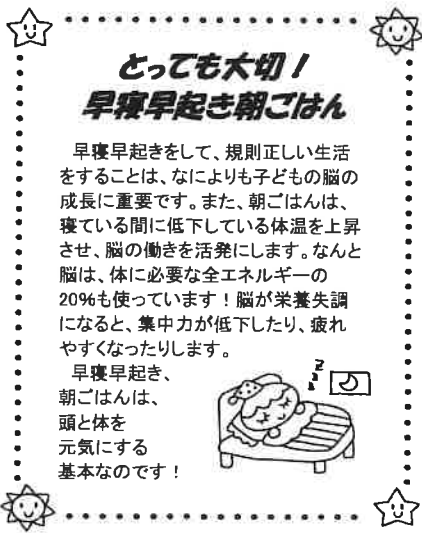 とっても大切！
早寝早起き朝ごはん
早寝早起きをして、規則正しい生活
をすることは、なによりも子どもの脳の
成長に重要です。また、朝ごはんは、
寝ている間に低下している体温を上昇
させ、脳の働きを活発にします。なんと
脳は、体に必要な全エネルギーの
20%も使っています！脳が栄養失調
になると、集中力が低下したり、疲れ
やすくなったりします。
早寝早起き、
朝ごはんは、
頭と体を
元気にする
基本なのです！